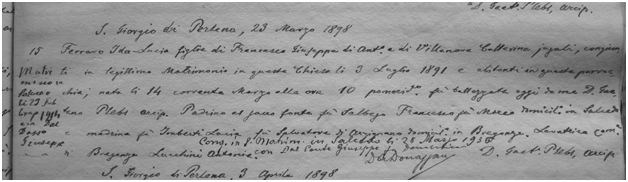 D. Gaet. Plebs, arcip.
S. Giorgio di Perlena, 23 Marzo 1898
15 Ferraro Ida-Lucia figlia di Francesco Giuseppe di Ant.º e di Villanova Catterina jugali, congiun
ti in legittimo Matrimonio in questa Chiesa li 3 Luglio 1891 e abitanti in questa parroc
chia, nata li 14 corrente Marzo alla ore 10 pomerid. fu battezzata oggi da me D. Gae
tano Plebs arcip. Padrino al sacro fonte fu Francesco fu Marco domicili in Salcedo
e madrina fu Lucia fu Salvatore di domicil. in Breganze. Levatrice com.
Cong. in S. Matrim. in Salcedo li 28 Marzo 1936
Breganze Antonia. con Dal Ponte Giuseppe fu
D. Gaet. Plebs, arcip.
S. Giorgio di Perlena, 3 Aprile 1898